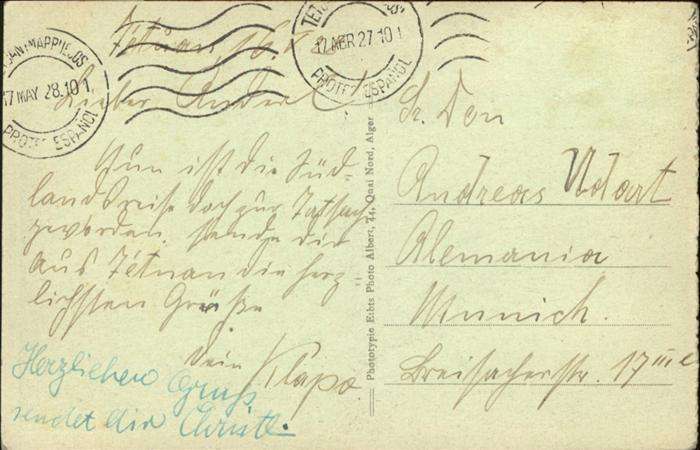 17 MAY 28.10 1
PROTEC ESPAÑOL
17 ABR 27 10 1
PROTEC ESPAÑOL
Tétuan, 16.
Lieber Anderl
Nun ist die Süd-
landsreise doch zur Tatsache
geworden. Sende dir
aus Tétuan die herz
lichsten Grüße
Dein Klapo
Herzlichen Gruss
sendet dir Christl.
Phototypie Etbts Photo Albert, 74, Quai Nord, Alger
Sr. Don
Andreas Udart
Alemania
Munich.
Breisacherstr. 17